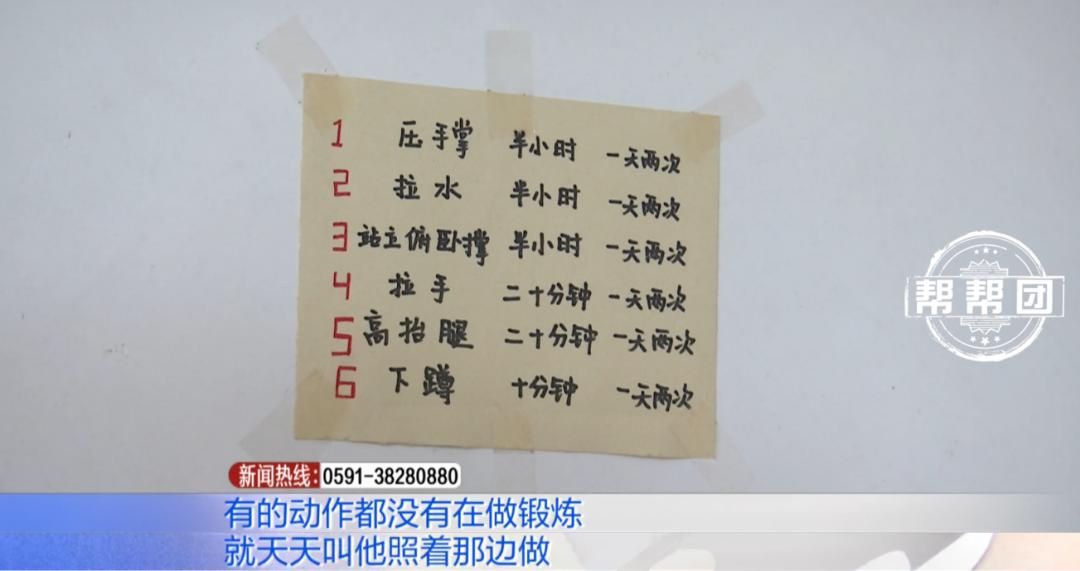 1 压手掌 半小时 一天两次
2 拉水 半小时 一天两次
3 站立俯卧撑 半小时 一天两次
4 拉手 二十分钟 一天两次
5 高抬腿 二十分钟 一天两次
6 下蹲 十分钟 一天两次
帮帮团
新闻热线：0591-38280880
有的动作都没有在做锻炼
就天天叫他照着那边做